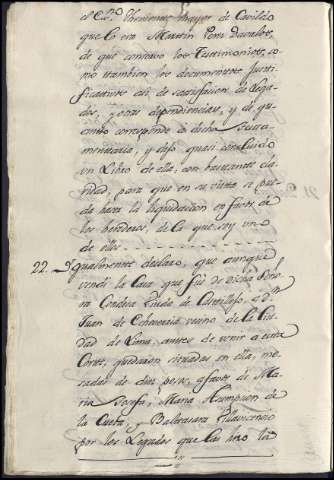 el Es.no Theniente mayor de Cavildo
que lo era Martin Perez Davalos,
de que constavo los Testimonios, co
mo tambien los documentos justi
ficativos de satisfacion de lega
dos, y otras dependiencias, y de quanto
correspondio à dicha Testa
mentaria, y dejò quasi concluido
un Libro de ello, con bastante cla
ridad, para que en su vista se pue
da hacer la liquidacion en favor de
los herederos, de lo que, soy uno
de ellos
22. Igualmente declaro, que aunque
vendi la Casa que fuè de dicha Seño
ra Condesa Viuda de Castillejo, à Dn.
Juan de Echavarria vecino de la Ciu
dad de Lima, antes de venir à esta
Corte, quedaron situadas en ella, me
sadas de diez pesos, a favor de Ma
ria Josefa, Maria Asumpcion de
la Cueva, y Baltasara Villavicencio
por los Legados que las hizo la